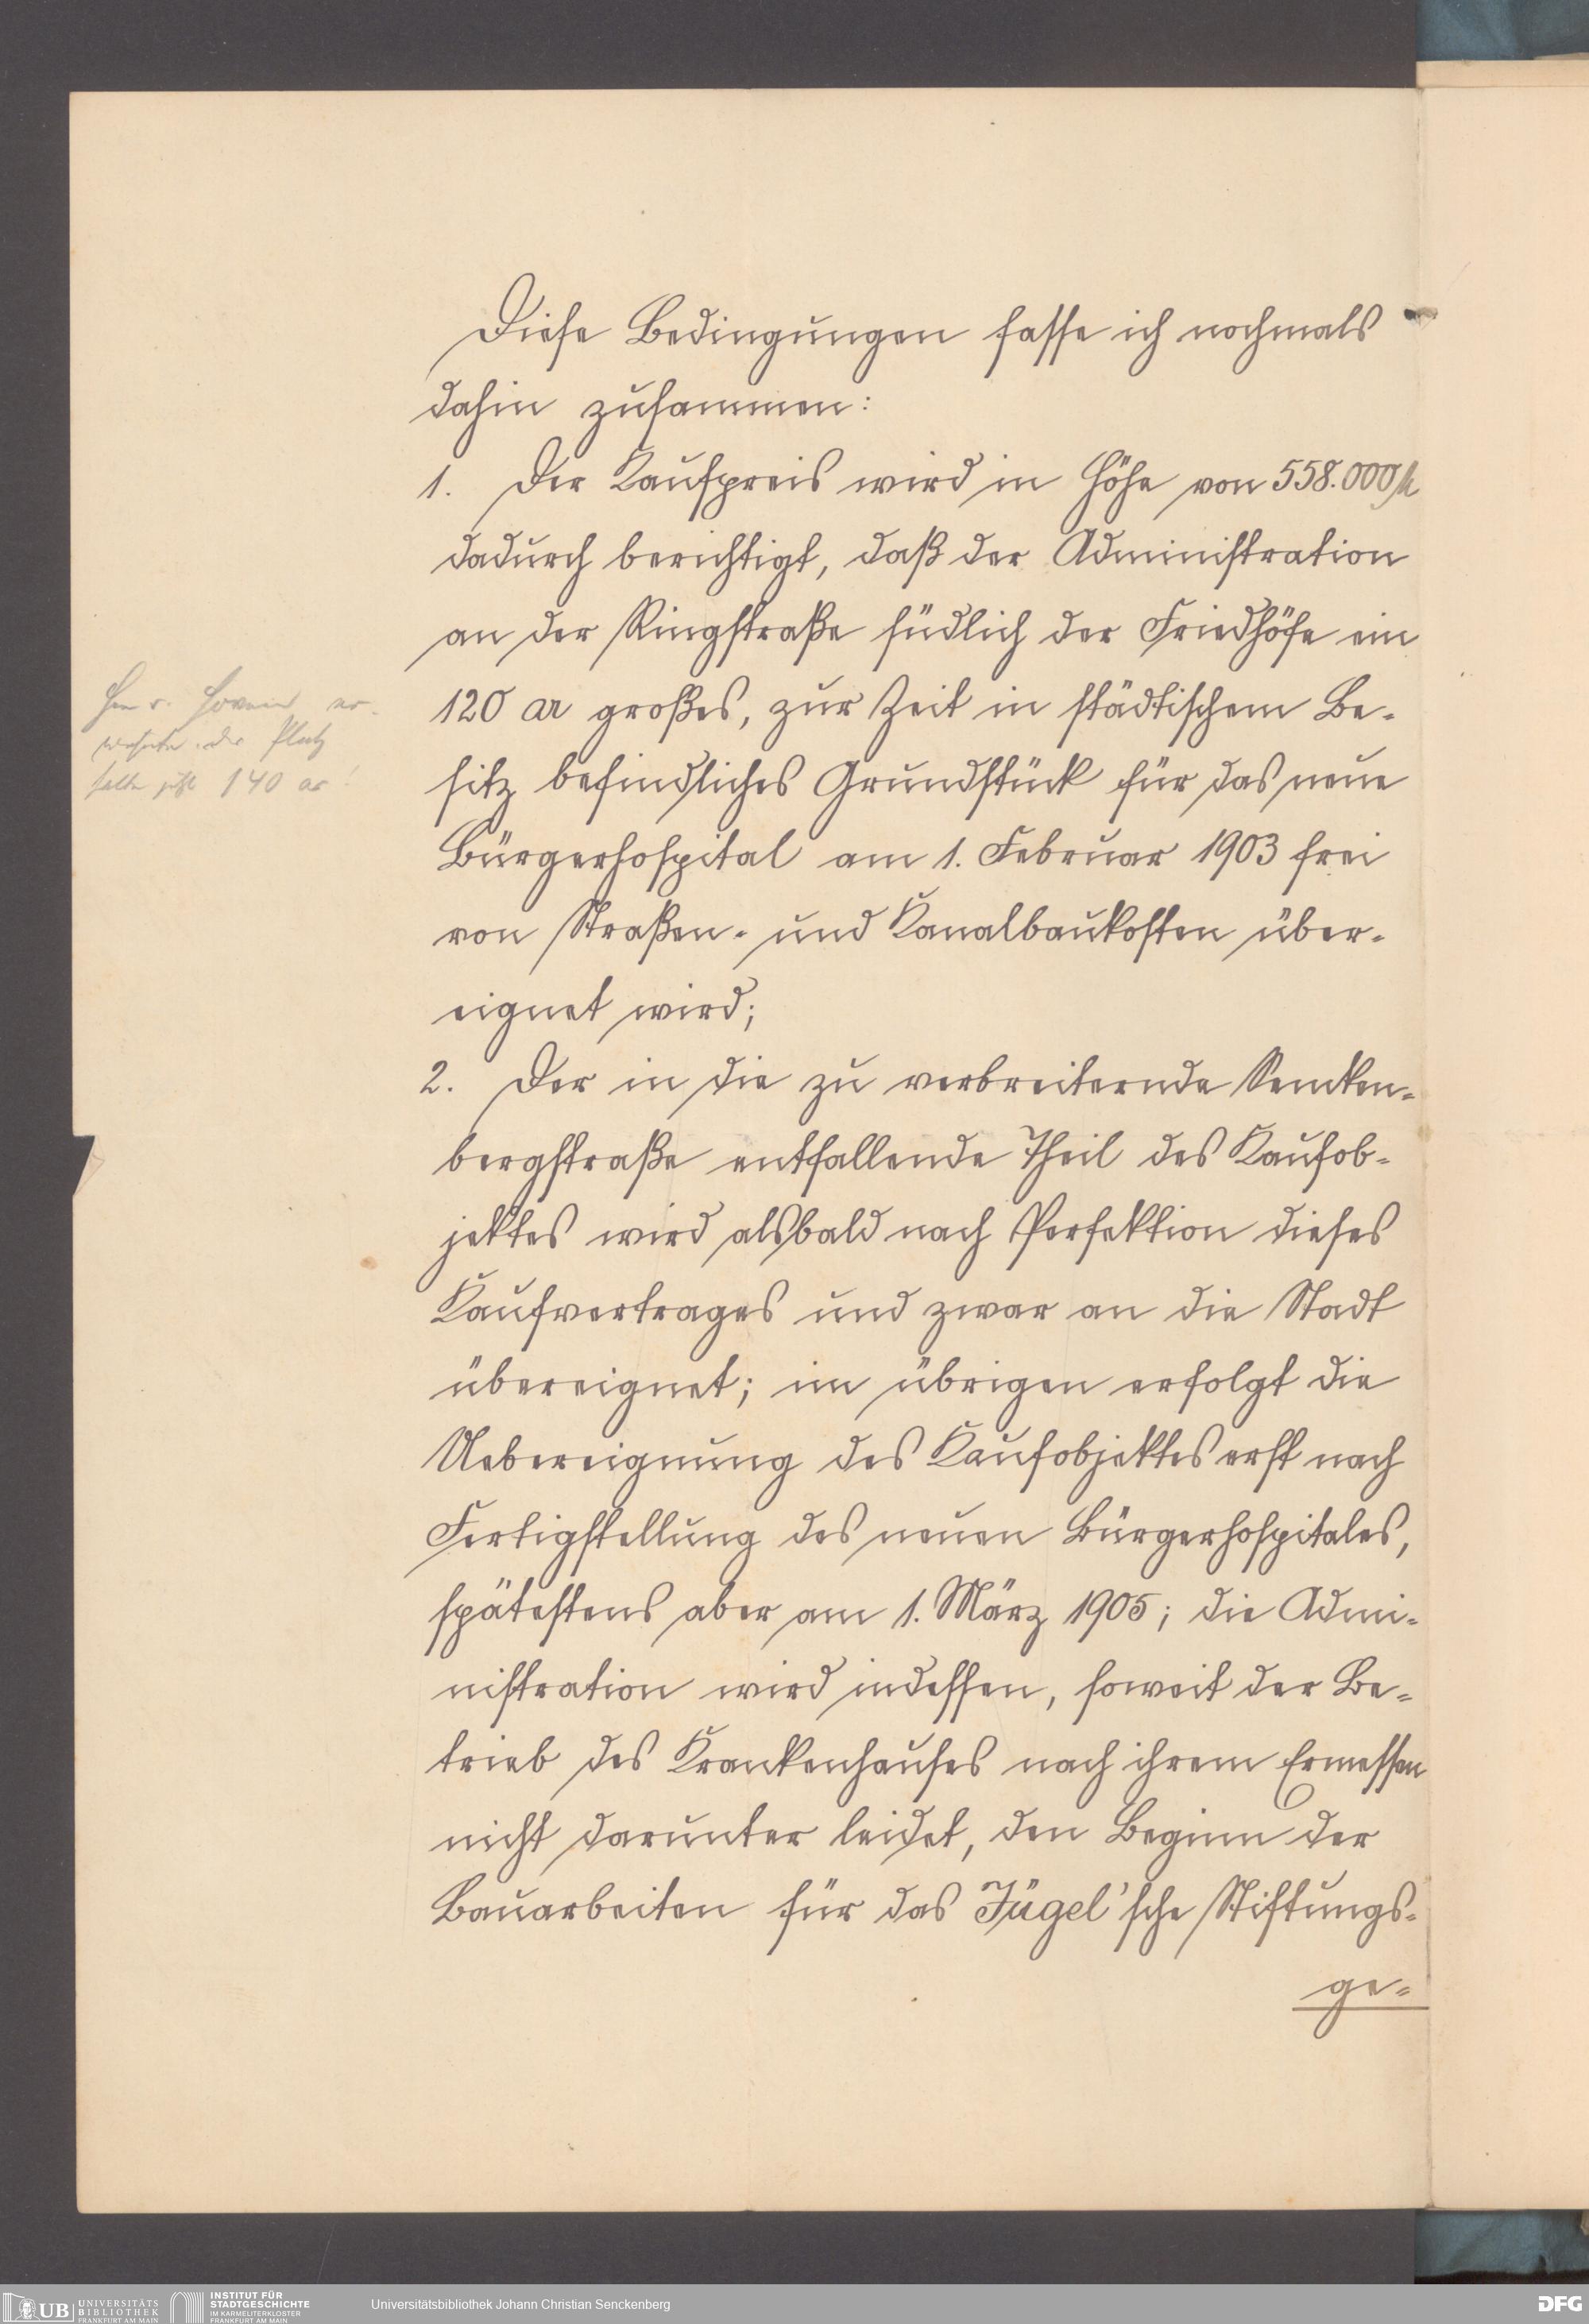 Diese Bedingungen fasse ich nochmals
dahin zusammen:
1. Der Kaufpreis wird in Höhe von 558.000 M
dadurch berichtigt, daß der Administration
an der Ringstraße südlich der Friedhöfe ein
120 ar großes, zur Zeit in städtischem Be-
sitz befindliches Grundstück für das neue
Bürgerhospital am 1. Februar 1903 frei
von Straßen- und Kanalbaukosten über-
eignet wird;
2. Der in die zu verbreiternde Sencken-
bergstraße entfallende Theil des Kaufob-
jektes wird alsbald nach Perfektion dieses
Kaufvertrages und zwar an die Stadt
übereignet; im übrigen erfolgt die
Uebereignung des Kaufobjektes erst nach
Fertigstellung des neuen Bürgerhospitales,
spätestens aber am 1. März 1905; die Admi-
nistration wird indessen, soweit der Be-
trieb des Krankenhauses nach ihrem Ermessen
nicht darunter leidet, den Beginn der
Bauarbeiten für das Jügel'sche Stiftungs-
ge-
er-
der Platz
140 ar!
UB UNIVERSITÄTS
BIBLIOTHEK
FRANKFURT AM MAIN
INSTITUT FÜR
STADTGESCHICHTE
IM KARMELITERKLOSTER
FRANKFURT AM MAIN
Universitätsbibliothek Johann Christian Senckenberg
DFG